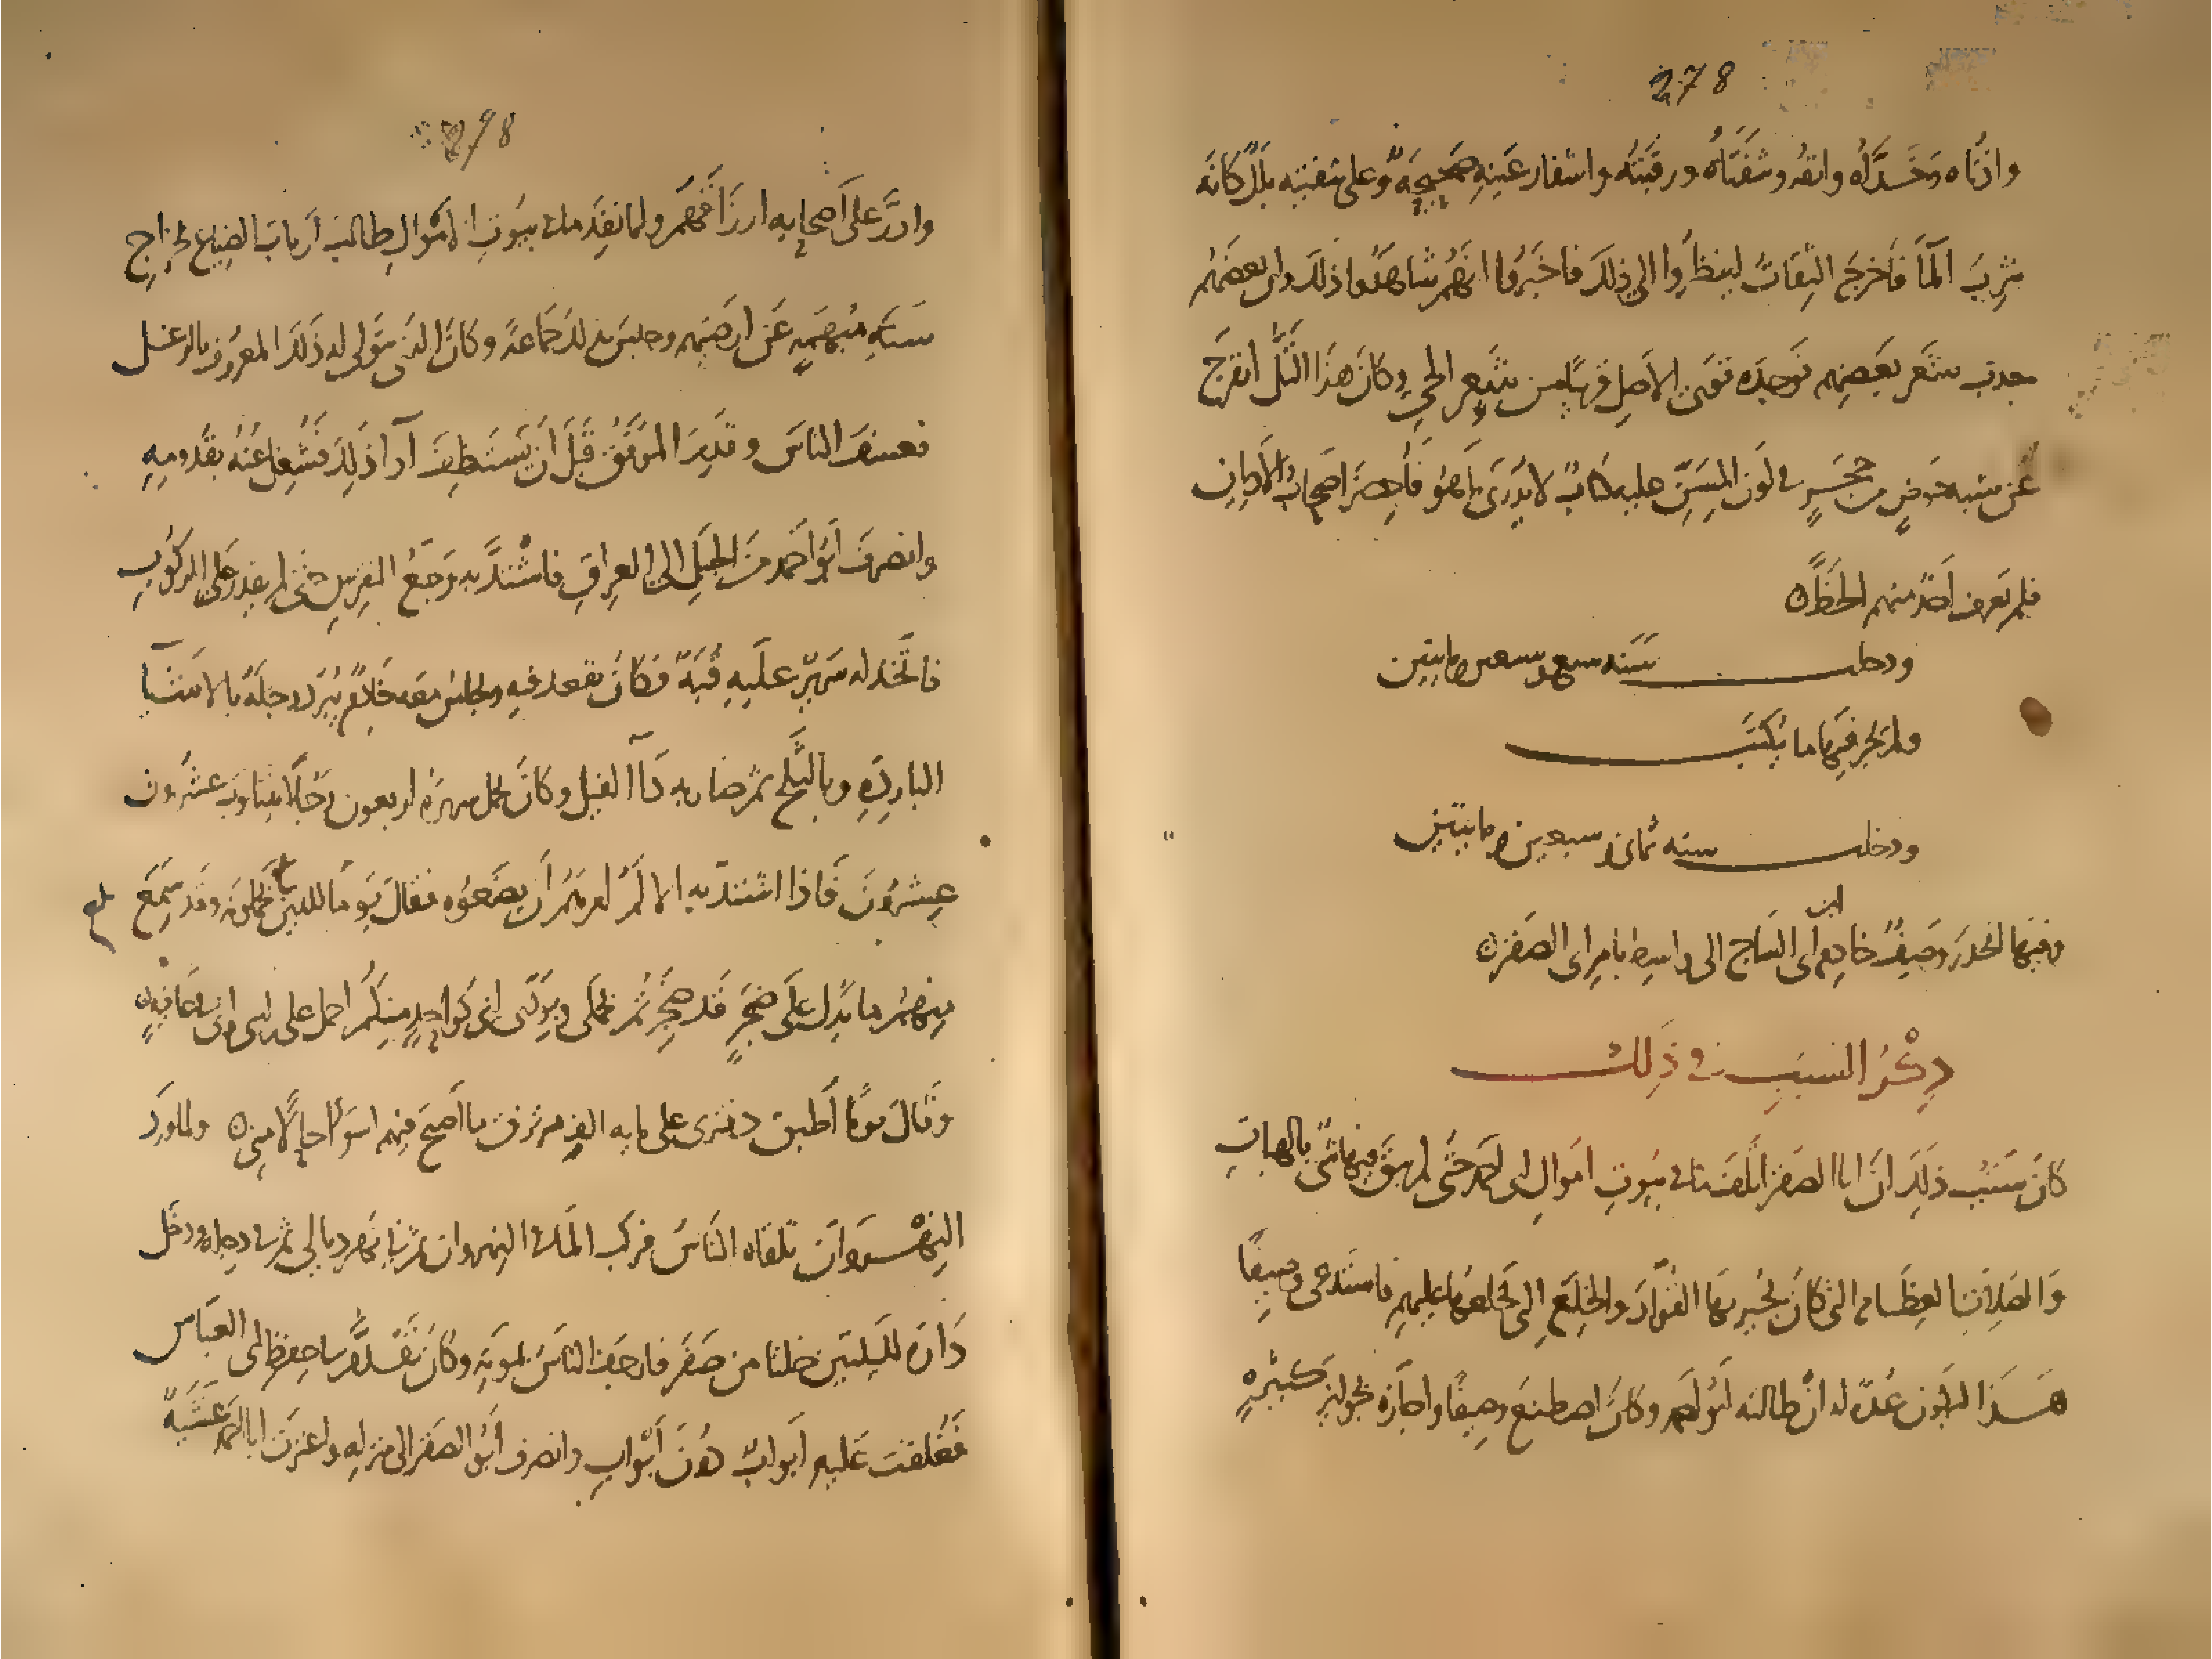 278
واذناه وخدّاه وانفه وشفتاه ورقبته واشفار عينه صحيحة وعلى شفتيه بلل كانه
شرب المآ فاخرج الثقات لينظروا الى ذلك فاخبروا انهم شاهدوا ذلك وان بعضهم
جذب شعر بعضهم فوجده قوى الاصل من شعر الحي وكان هذا التل انفرج
عن شبه حوض من حجر في لون المسن عليه كتاب لا يدرى ما هو فاحضر اصحاب الاديان
فلم يعرف احد منهم الخط ه
ودخلت سنه سبع وسبعين ومايتين
ولم يجر فيها ما يكتب
ودخلت سنه ثمان وسبعين ومايتين
وفيها انحدر وصيف خادم ابن ابى الساج الى واسط بامر ابى الصقر ه
ذكر السبب في ذلك
كان سبب ذلك ان ابا الصقر اتلف ما في بيوت اموال ابى احمد حتى لم يبق فيها شى بالهبات
والصلات العظام التى كان يجيز بها القواد والخلع التى يخلعها عليهم فاستدعى وصيفا
هذا ليكون عدة له ان طالبه ابو احمد وكان اصطنع وصيفا واجازه بجوايز كثيرة
278
وادرّ على اصحابه ارزاقهم ولما نفد ما في بيوت الاموال طالب ارباب الضياع بخراج
سنة مبهمة عن ارضهم وحبس بذلك جماعة وكان الذى يتولى له ذلك المعروف بالزغل
فعسف الناس وقدم الموفق قبل ان يستنظف اداذلك فشغل عنه بقدومه
وانصرف ابو احمد من الجبل الى العراق فاشتد به وجع النقرس حتى لم يقدر على الركوب
فاتخذ له سرير عليه قبة فكان يقعد فيه ويجلس معه خادم يبرد رجله بالاشيا
الباردة وبالثلج ثم صار به دآ الفيل وكان يحمل سريره اربعون رجلا يتناوب عشرون
عشرون فاذا اشتد به الالم امرهم ان يضعوه فقال يوما للذين يحملونه وقد سمع
منهم ما يدل على ضجر قد ضجرتم بحملى وبودّى انى كواحد منكم احمل على راسى وانى فى عافية
وقال يوما اطبق دفترى على ماية الف مرتزق ما اصبح فيهم اسوا حالا منى ه ولما ورد
النهروان تلقاه الناس فركب المآ في النهروان ثم في نهر ديالى ثم في دجله ودخل
داره لليلتين خلتا من صفر فارجف الناس بموته وكان تقدم فى حفظ ابى العباس
فغلقت عليه ابواب دون ابواب وانصرف ابو الصقر الى منزله واعترت ابا احمد غشية